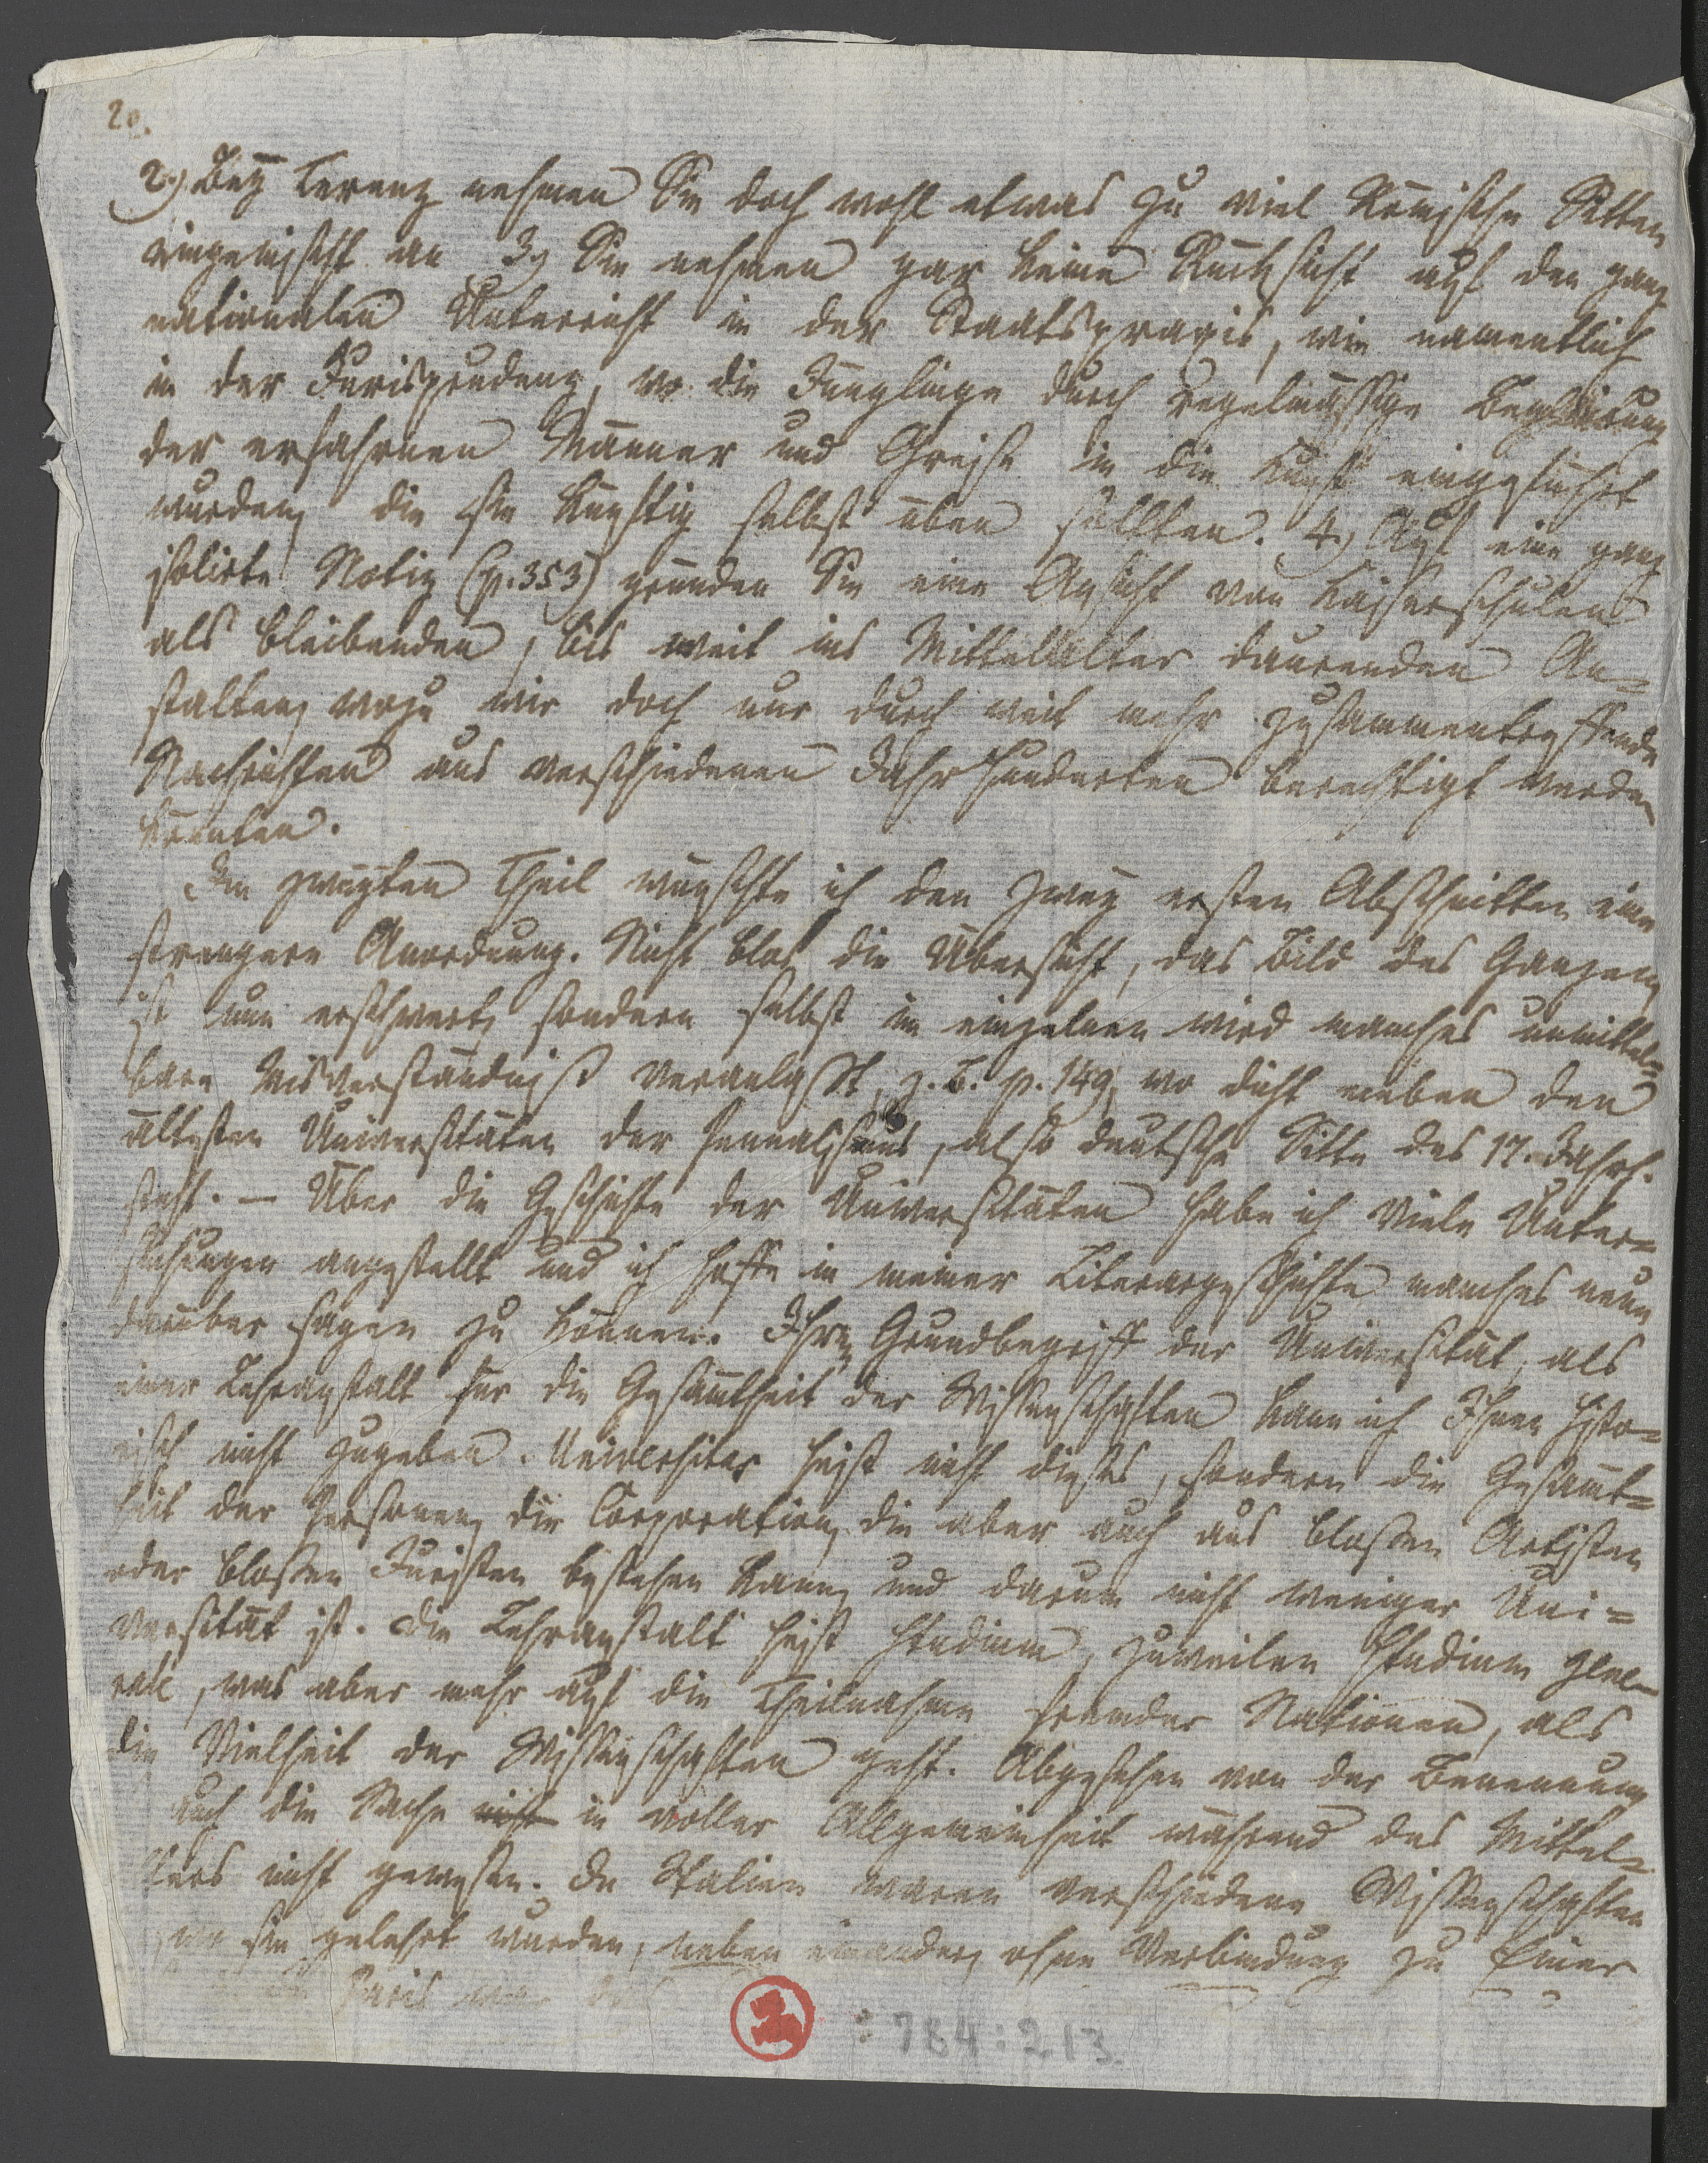 20.
2.) Bey Terenz nehmen Sie doch wohl etwas zu viel Römische Sitten
eingemischt an 3.) Sie nehmen gar keine Rücksicht auf den ganz
nationalen Unterricht in der Staatspraxis, wie namentlich
in der Jurisprudenz, wo die Jünglinge durch regelmässige Begleitung
der erfahrnen Männer und Greise in die Kunst eingeführt
wurden, die sie künftig selbst üben sollten. 4.) Auf eine ganz
isolirte Notiz (p. 353) gründen Sie eine Ansicht von Kaiserschulen
als bleibenden, bis weit ins Mittelalter daurenden An=
stalten, wozu wir doch nur durch weit mehr zusammentreffende
Nachrichten aus verschiedenen Jahrhunderten berechtigt werden
könnten.
Im zweyten Theil wünschte ich den zwey ersten Abschnitten eine
strengere Anordnung. Nicht blos die Übersicht, das Bild des Ganzen,
ist nun erschwert, sondern selbst im einzelnen wird manches unmittel=
bare Misverständniß veranlaßt, z. B. p. 149, wo dicht neben den
ältesten Universitäten der Pennalismus, also deutsche Sitte des 17. Jahrh.
steht. — Über die Geschichte der Universitäten habe ich viele Unter=
suchungen angestellt und ich hoffe in meiner Literargeschichte manches neue
darüber sagen zu können. Ihren Grundbegriff der Universität, als
einer Lehranstalt für die Gesamtheit der Wissenschaften kann ich Ihnen histo=
risch nicht zugeben. Universitas heist nicht dieses, sondern die Gesamt=
heit der Personen, die Corporation, die aber auch aus blossen Artisten
oder blossen Juristen bestehen kann, und darum nicht weniger Uni=
versität ist. Die Lehranstalt heist Studium, zuweilen Studium gene=
rale, was aber mehr auf die Theilnahme fremder Nationen, als
die Vielheit der Wissenschaften geht. Abgesehen von der Benennung
auch die Sache nicht in voller Allgemeinheit während des Mittel=
alters nicht gewesen. In Italien waren verschiedene Wissenschaften
wo sie gelehrt wurden, neben einander, ohne Verbindung zu Einer
Paris war
: 784 : 213